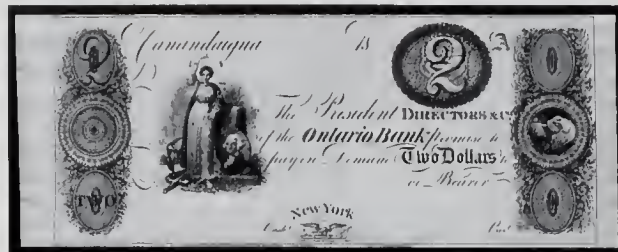 2
Canandaigua 18 2 A
The President DIRECTORS & Co
of the Ontario Bank promise to
pay on Demand Two Dollars to
or Bearer
TWO
New York
Cash.r Pres.t